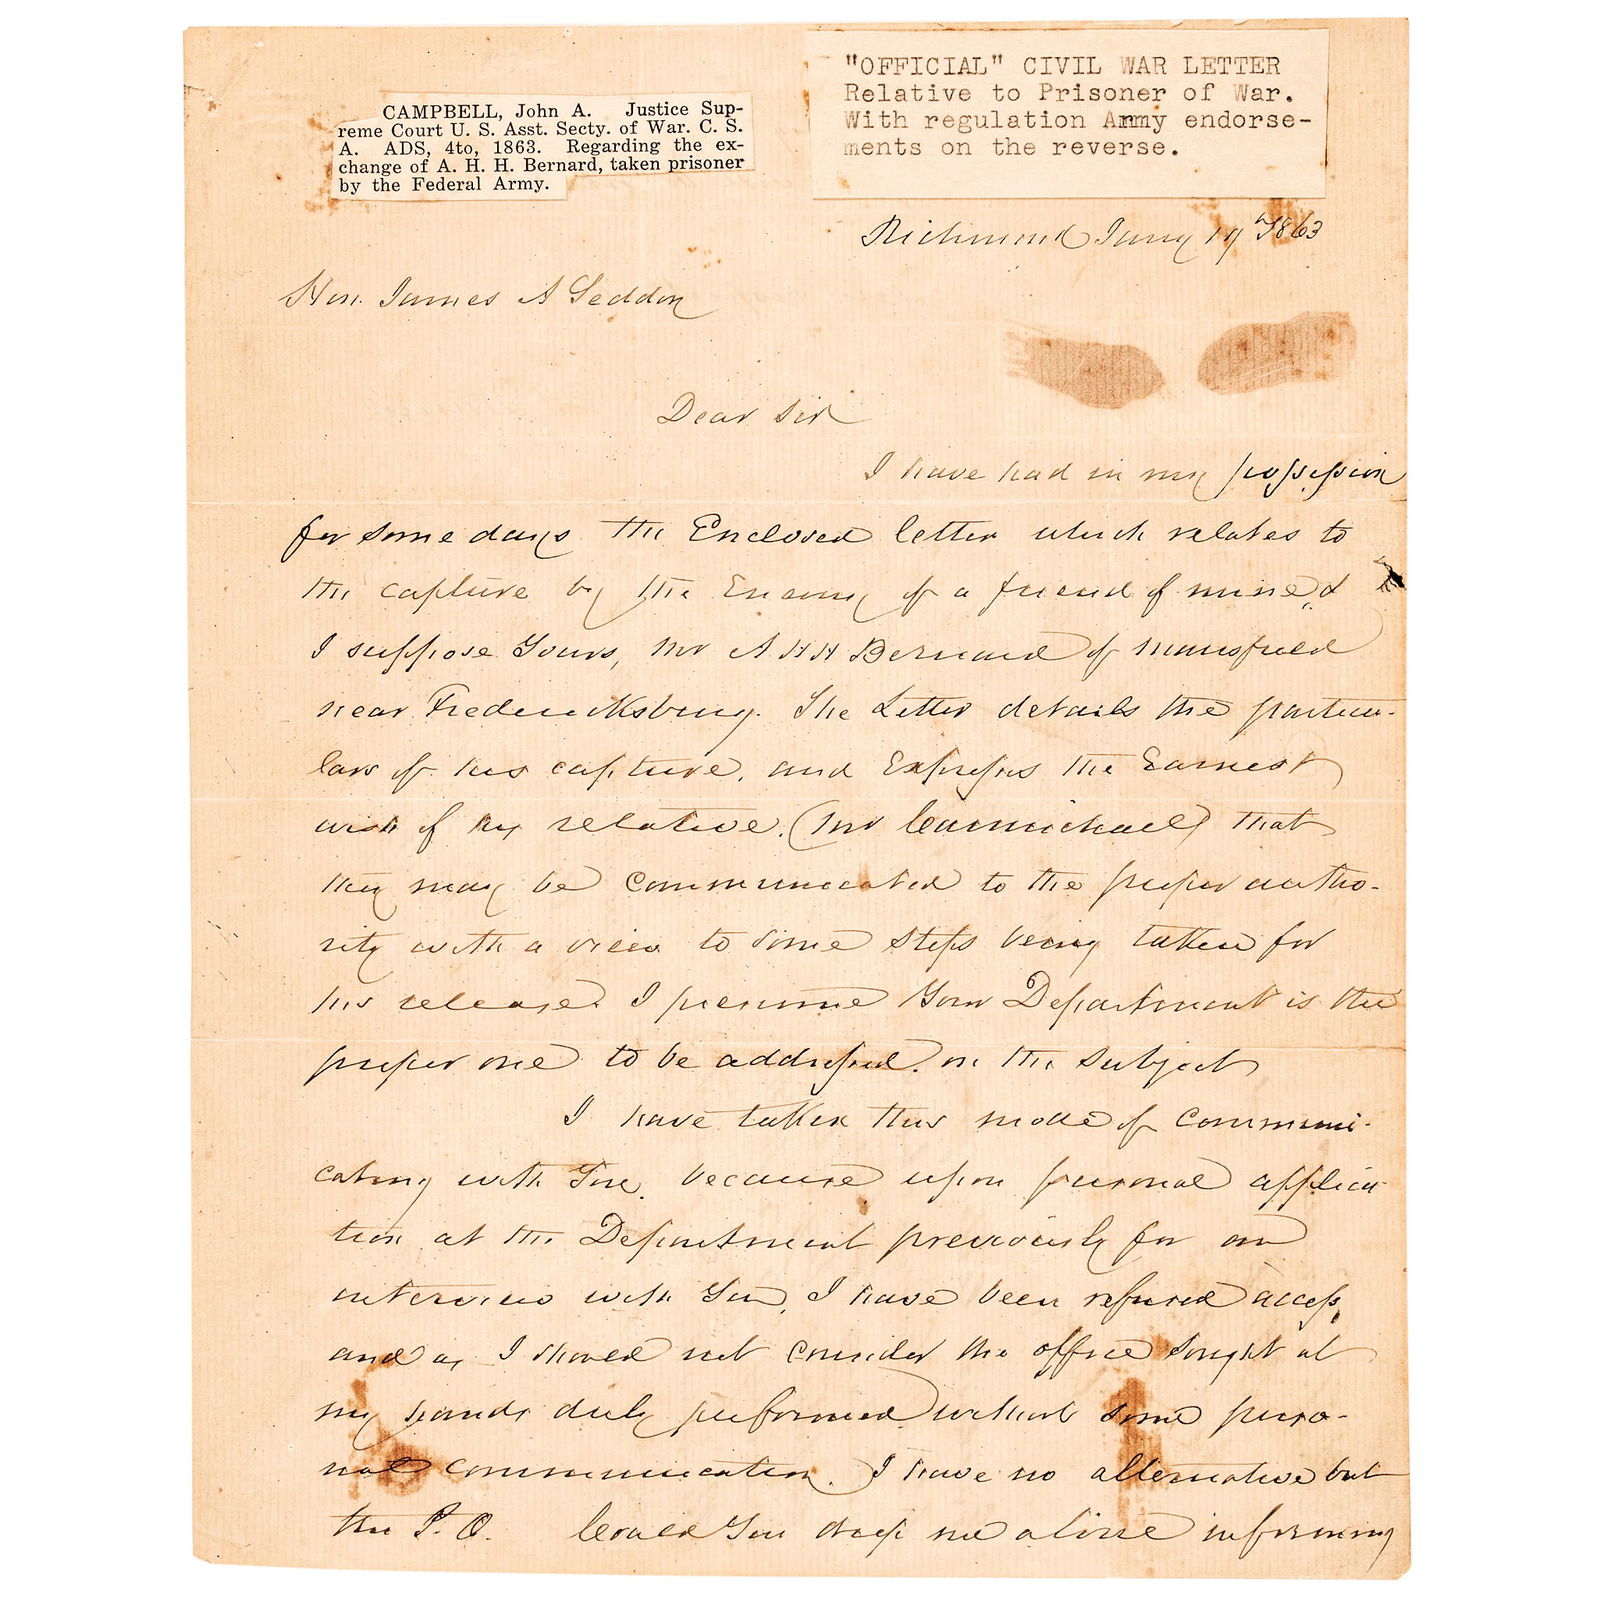 CAMPBELL, John A. Justice Sup-
reme Court U. S. Asst. Secty. of War. C. S.
A. ADS, 4to, 1863. Regarding the ex-
change of A. H. H. Bernard, taken prisoner
by the Federal Army.
"OFFICIAL" CIVIL WAR LETTER
Relative to Prisoner of War.
With regulation Army endorse-
ments on the reverse.
Richmond Jany 19th 1863
Hon. James A Seddon
Dear Sir
I have had in my possession
for some days the Enclosed letter which relates to
the capture by the Enemy of a friend of mine, &
I suppose Yours, Mr A H H Bernard of Mansfield
near Fredericksburg. The Letter details the particu-
lars of his capture, and Expresses the Earnest
wish of my relative, (Mr Carmichael) that
they may be communicated to the proper autho-
rity with a view to some steps being taken for
his release. I presume Your Department is the
proper one to be addressed on the subject
I have taken this mode of communi-
cating with You, because upon personal applica-
tion at the Department previously for an
interview with You, I have been refused access,
and as I should not consider the office sought at
my hands duly performed without some perso-
nal communication, I have no alternative but
the P. O. Could You drop me a line informing